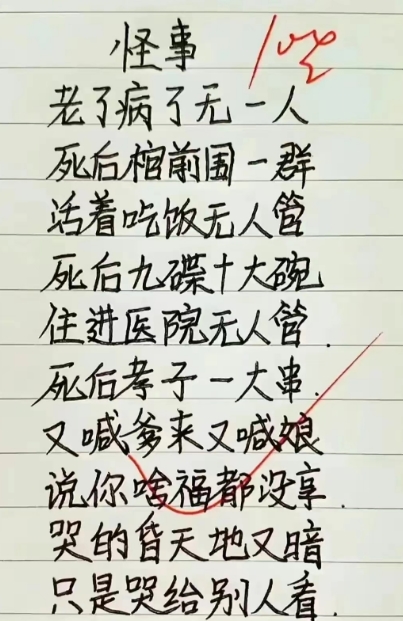 怪事
老了病了无一人
死后棺前围一群
活着吃饭无人管
死后九碟十大碗
住进医院无人管.
死后孝子一大串.
又喊爹来又喊娘
说你啥福都没享.
哭的昏天地又暗
只是哭给别人看.